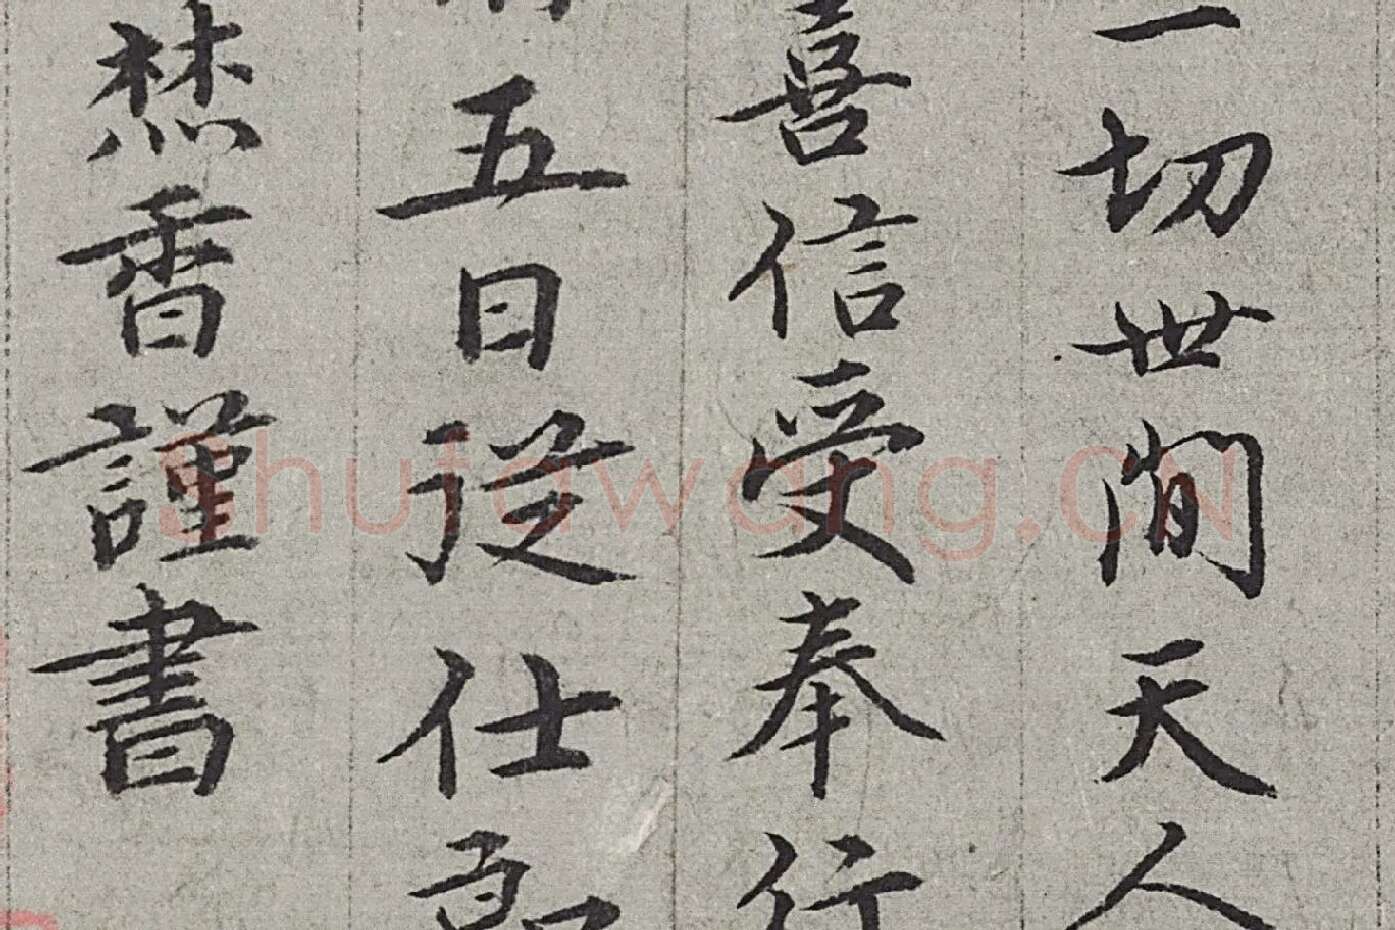 一切世間天人
喜信受奉行
五日從仕郎
焚香謹書
shufawang.CN